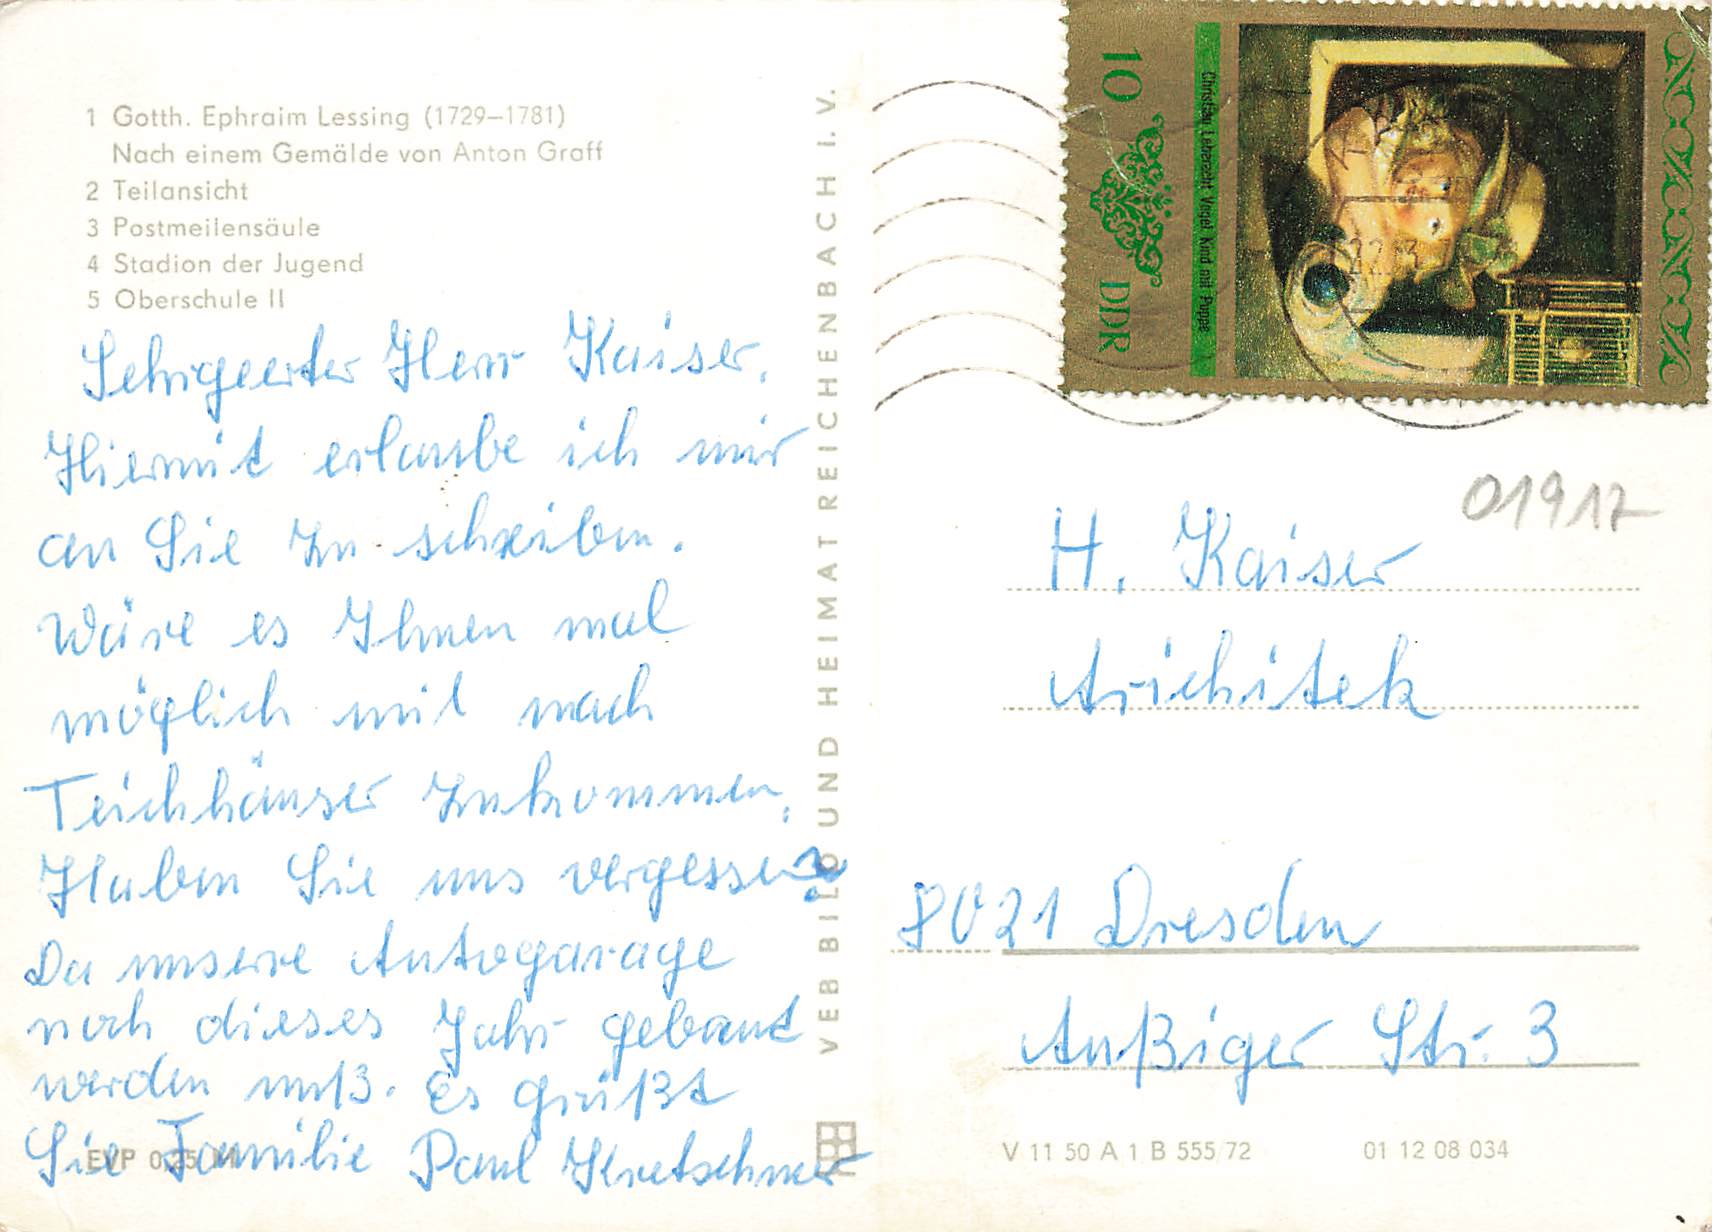 1 Gotth. Ephraim Lessing (1729–1781)
Nach einem Gemälde von Anton Graff
2 Teilansicht
3 Postmeilensäule
4 Stadion der Jugend
5 Oberschule II
Sehrgeerter Herr Kaiser,
Hiermit erlaube ich mir
an Sie Zu schreiben.
Wäre es Ihnen mal
möglich mit nach
Teichhäuser Zukommen,
Haben Sie uns vergessen?
Da unsere Autogarage
noch dieses Jahr gebaut
werden muß. Es grüßt
Sie Familie Paul Kretschmer
EVP 0,25 M
VEB BILD UND HEIMAT REICHENBACH I. V.
10 DDR
Christian Leberecht Vogel Kind mit Puppe
01917
H. Kaiser
Arichitek
8021 Dresden
Außiger Str. 3
V 11 50 A 1 B 555/72 01 12 08 034